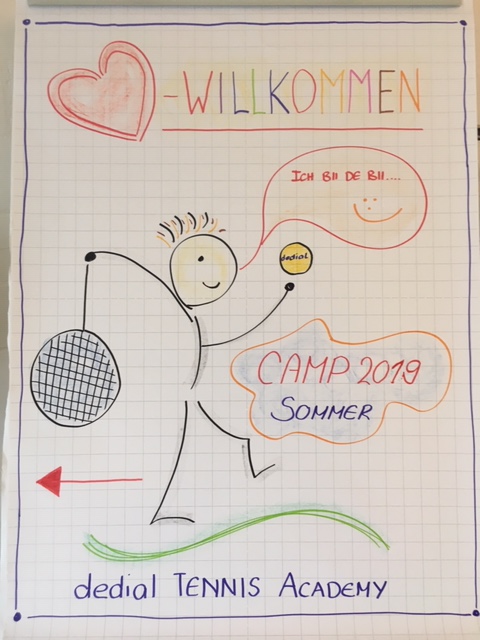 -WILLKOMMEN
ICH BII DE BII....
dedial
CAMP 2019
SOMMER
dedial TENNIS ACADEMY